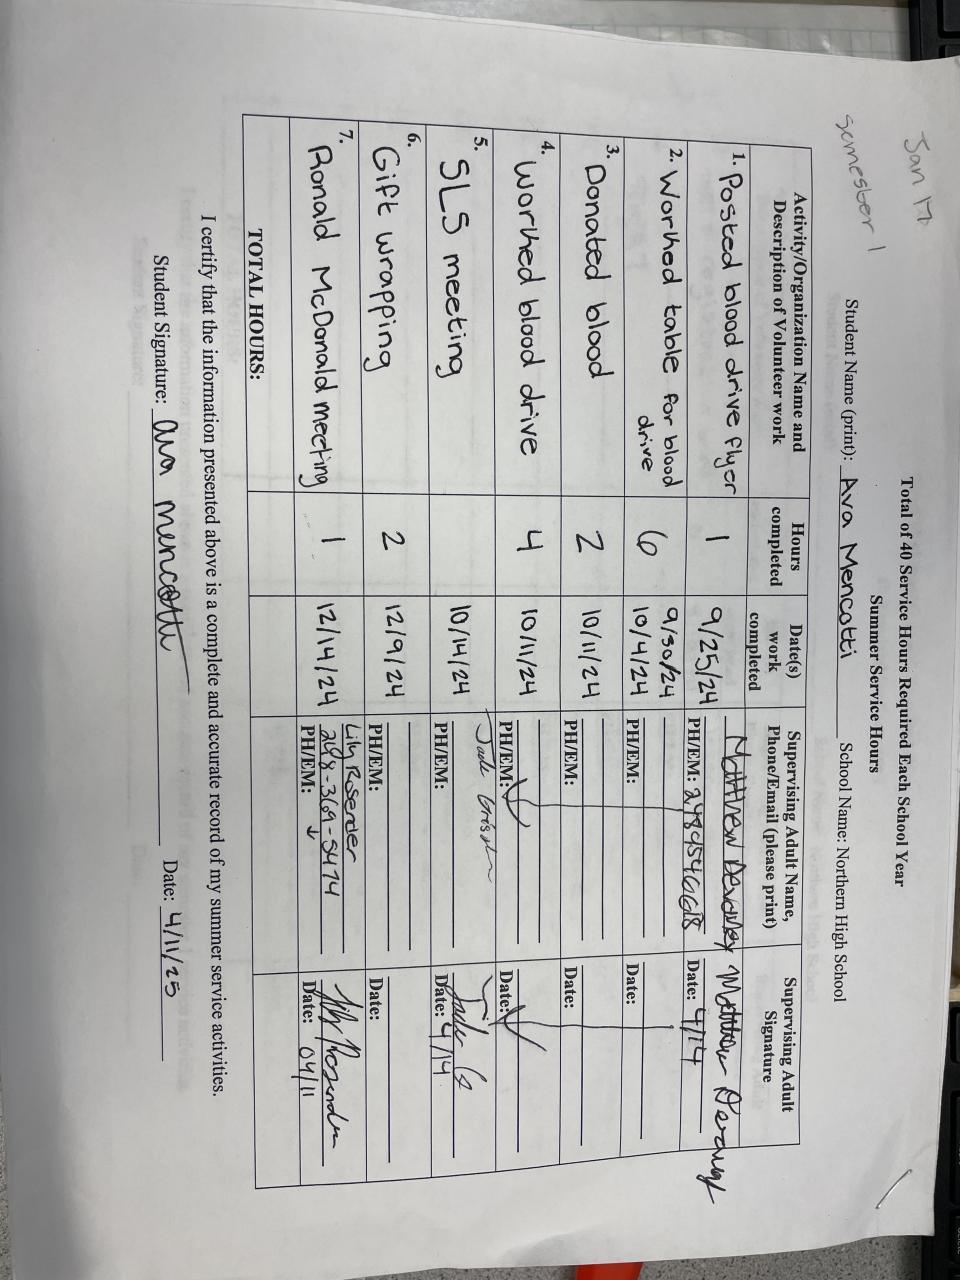 Jan 17
semester 1
Total of 40 Service Hours Required Each School Year
Summer Service Hours
Student Name (print): Ava Mencotti School Name: Northern High School
Activity/Organization Name and Description of Volunteer work
Hours completed
Date(s) work completed
Supervising Adult Name, Phone/Email (please print)
Supervising Adult Signature
1. Posted blood drive flyer
1
9/25/24
Matthew
PH/EM: 2489454668
Matthew
Date: 4/14
2. Worked table for blood drive
6
9/30/24
10/4/24
PH/EM:
Date:
3. Donated blood
2
10/11/24
PH/EM:
Date:
4. Worked blood drive
4
10/11/24
PH/EM:
Date:
5. SLS meeting
10/14/24
Jade
PH/EM:
Jade
Date: 4/14
6. Gift wrapping
2
12/9/24
PH/EM:
Date:
7. Ronald McDonald meeting
1
12/14/24
Lily Rosender
248-369-5474
PH/EM:
Lily Rosender
Date: 04/11
TOTAL HOURS:
I certify that the information presented above is a complete and accurate record of my summer service activities.
Student Signature: ava mencotti Date: 4/11/25